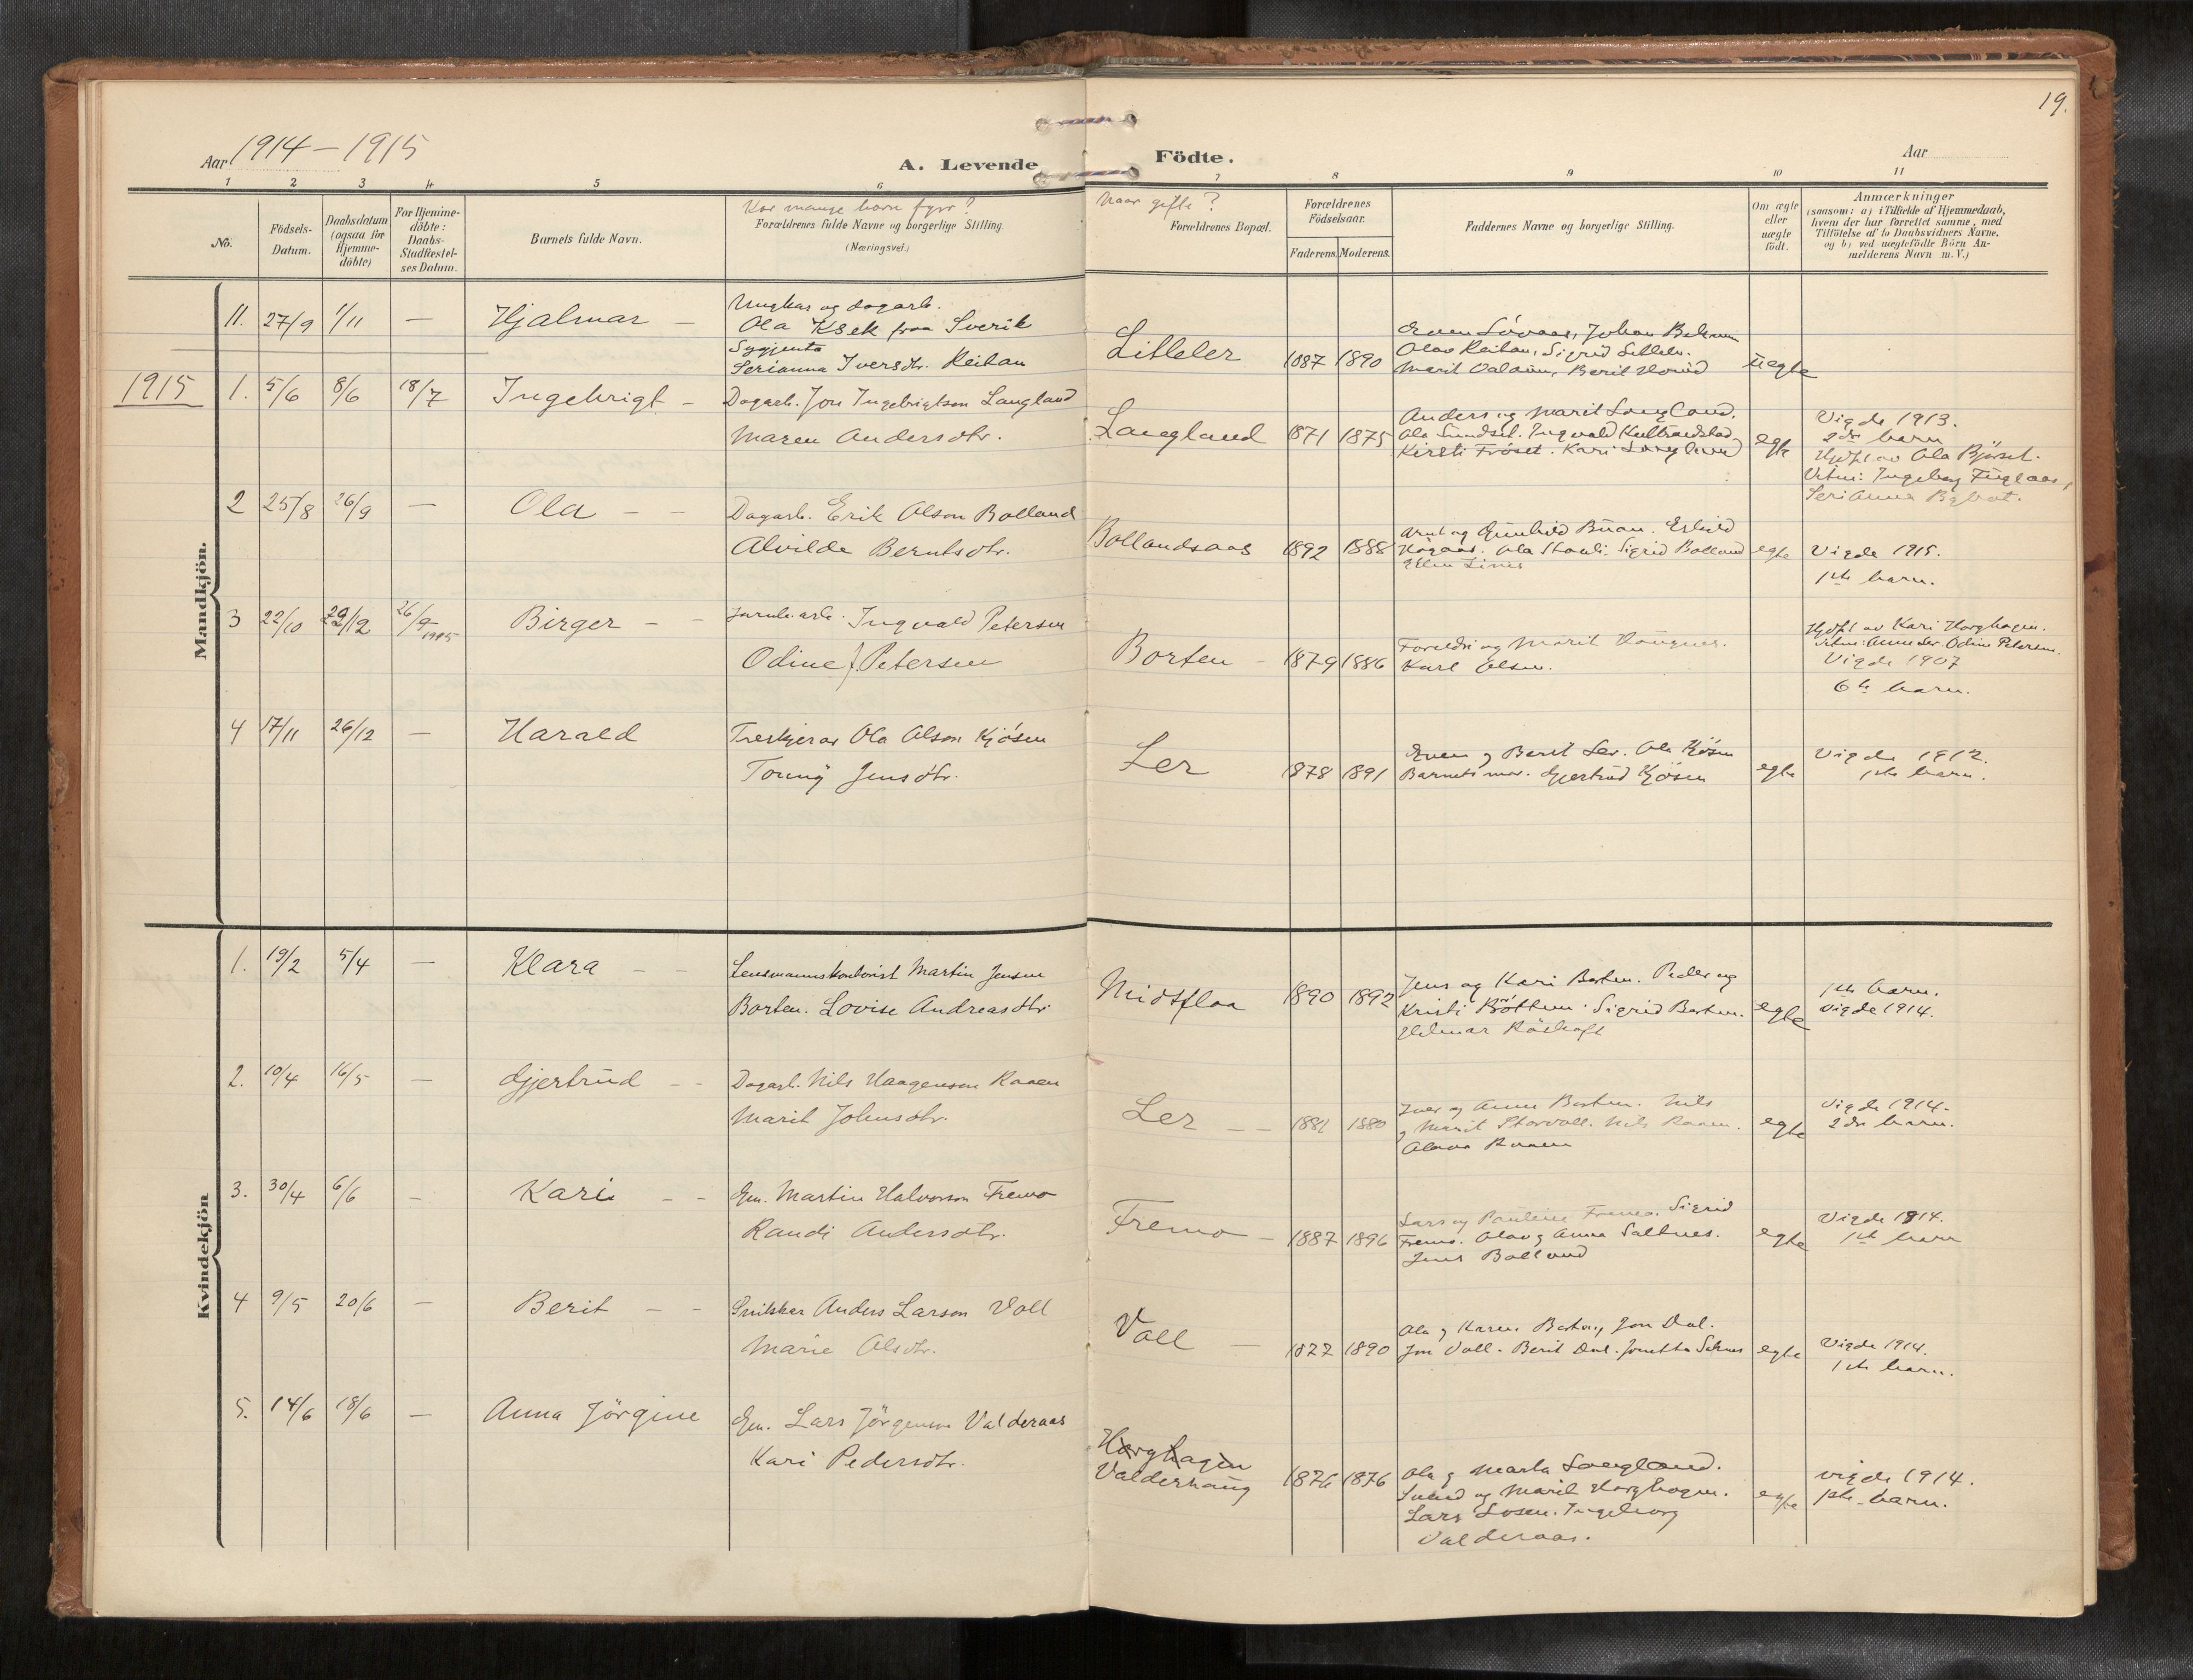 19.
Aar 1914-1915
A. Levende Födte.
Aar
1 2 3 4 5 6 7 8 9 10 11
No.
Födsels-
Datum.
Daabsdatum
(ogsaa for
Hjemme-
döbte)
For Hjemme-
döbte:
Daabs-
Stadfæstel-
ses Datum.
Barnets fulde Navn.
Kor mange born fyrr?
Forældrenes fulde Navne og borgerlige Stilling.
(Næringsvei.)
Naar gifte?
Forældrenes Bopæl.
Forældrenes
Födselsaar.
Faderens. Moderens.
Faddernes Navne og borgerlige Stilling.
Om ægte
eller
uægte
födt.
Anmærkninger
(saasom: a) i Tilfælde af Hjemmedaab,
hvem der har forrettet samme, med
Tilföielse af to Daabsvidners Navne,
og b) ved uægtefödte Börn An-
melderens Navn m.V.)
Mandkjön.
11. 27/9 1/11 — Hjalmar —
Ungkar og dagarb.
Ola fraa Sverik
Serianna Iversdtr. Reitan
Litleler
1887 1890
Johan
Olav Reitan, Sigrid
Marit Berit
uegte
1915
1. 5/6 8/6 18/7 Ingebrigt —
Dagarb. Jon Ingebrigtson Langland
Maren Andersdtr.
Langland
1871 1875
Anders og Marit Langland.
Ola Sundset. Ingvald
Kirsti Fröset. Kari Langland
egte
Vigde 1913.
2dre barn
Hjdpt av Ola Bjørset.
Vitni: Ingeborg Fuglaas,
Serianna
2 25/8 26/9 — Ola — —
Dagarb. Erik Olson Bolland
Alvilde Berntsdtr.
Bollandsaas
1892 1888
Arnt og Gunhild Buan.
Ola Sigrid Bolland
egte
Vigde 1915.
1ste barn.
3 22/10 29/12 26/9 1915 Birger — —
Ingvald Petersen
Odine J. Petersen
Borten —
1879 1886
Foreldri og Marit
Karl Olsen.
Hjdpt av Kari Horghagen.
Vitni: Odine Petersen.
Vigde 1907
6te barn.
4 17/11 26/12 — Harald
Treskjerar Ola Olson Kjösen
Jensdtr.
Ler
1878 1891
Even og Berit Ler. Ola Kjösen
Barnets mor. Gjertrud Kjösen
egte
Vigde 1912.
1ste barn.
Kvindekjön
1. 19/2 5/4 — Klara — —
Lensmannskontorist Martin Jensen
Borten. Lovise Andreasdtr.
Midtflaa
1890 1892
Jens og Kari Borten. Peder og
Kristi Sigrid Borten.
Hilmar
egte
1ste barn.
Vigde 1914.
2. 10/4 16/5 — Gjertrud — —
Dagarb. Nils Haagenson Raaen
Marit Johnsdtr.
Ler — —
1881 1880
Iver og Anne Borten. Nils
og Marit Storvoll. Nils Raaen.
Raaen
egte
Vigde 1914.
2dre barn.
3. 30/4 6/6 — Kari — —
Gm. Martin Halvorson Fremo
Randi Andersdtr.
Fremo —
1887 1896
Lars og Pauline Fremo. Sigrid
Fremo. Olav og Anna Saltnes.
Jens Bolland
egte
Vigde 1914.
1ste barn
4 9/5 20/6 — Berit — —
Snikkar Anders Larson Voll
Marie Olsdtr.
Voll —
1877 1890
Ola og Karen Jon Dal.
Jon Voll. Berit Dal.
egte
Vigde 1914.
1ste barn.
5. 14/6 18/6 — Anna Jörgine
Gm. Lars Jörgenson Valderaas
Kari Pedersdtr.
Horghagen
Valderhaug
1876 1876
Ola og Marta Langland.
Svend og Marit Horghagen.
Lars Losen. Ingeborg
Valderaas.
egte
vigde 1914.
1ste barn.